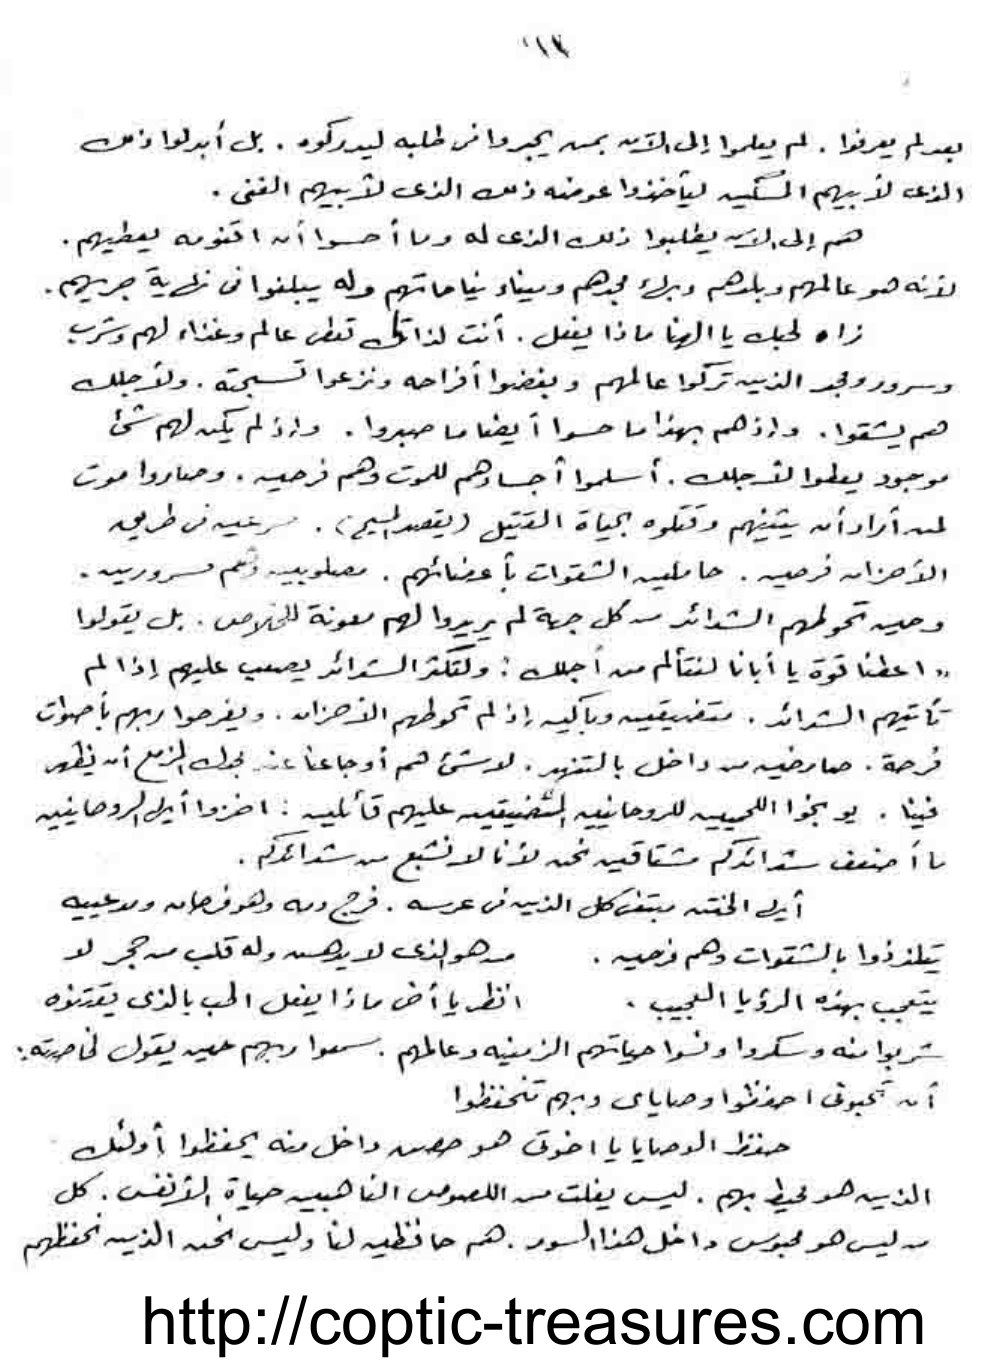 ١١٣
بعد لم يعرفوا . لم يعلموا إلى الآن بمن يجبروا فى طلبه ليدركوه . بل أبدلوا ذلك
الذى لأبيهم المسكين ليأخذوا عوضه ذلك الذى لأبيهم الغنى .
هم إلى الآن يطلبوا ذلك الذى له وما أحسوا أن اقنومه يعطيهم .
لأنه هو عالمهم وبلدهم وبهاء مجدهم وميناء نياحاتهم وله يبلغوا فى نهاية جريهم .
نراه لحبك يا الهنا ماذا يفعل . أنت لذاتك تعطى عالم وغذاء لهم وشرب
وسرور ومجد الذين تركوا عالمهم وبغضوا أفراحه ونزعوا تسبحته . ولأجلك
هم يشقوا . وإذ هم بهذا ما حسوا أيضا ما صبروا . وإذ لم يكن لهم شئ
موجود يعطوا لأجلك . أسلموا أجسادهم للموت وهم فرحين . وصاروا موت
لمن أراد أن يثنيهم وقتلوه بحياة القتيل ( يقصد المسيح ) . مسرعين فى طريق
الأحزان فرحين . حاملين الشقوات بأعضائهم . مصلوبين وهم مسرورين .
وحين تحوطهم الشدائد من كل جهة لم يريدوا لهم معونة للخلاص . بل يقولوا
" اعطنا قوة يا أبانا لنتألم من أجلك : ولتكثر الشدائد يصعب عليهم إذا لم
تأتيهم الشدائد . متضيقين وباكين إذ لم تحوطهم الأحزان . ويفرحوا ربهم بأصوات
فرحة . صارخين من داخل بالتنهد . لا شئ هم أوجاعنا عند مجدك المزمع أن يظهر
فينا . يوبخوا اللحميين للروحانيين المتضيقين عليهم قائلين : اخزوا أيها الروحانيين
ما أضعف شدائدكم مشتاقين نحن لأننا لا نشبع من شدائدكم .
أيها الختن مبتغى كل الذين فى عرسه . فرح دمه وهو فرحان ومدعيينه
يتلذذوا بالشقوات وهم فرحين . من هو الذى لا يدهس وله قلب من حجر لا
يتعجب بهذه الرؤيا العجيب . انظر يا أخى ماذا يفعل الحب بالذى يقتنوه
شربوا منه وسكروا ونسوا حياتهم الزمنية وعالمهم . سمعوا ربهم حين يقول لخاصته :
أن تحبونى احفظوا وصاياى وبهم تتحفظوا
حفظ الوصايا يا اخوتى هو حصن داخل منه يحفظوا أولئك
الذين هو محيط بهم . ليس يفلت من اللصوص الناهبين حياة الأنفس . كل
من ليس هو محبوس داخل هذا السور . هم حافظين لنا وليس نحن الذين نحفظهم
http://coptic-treasures.com